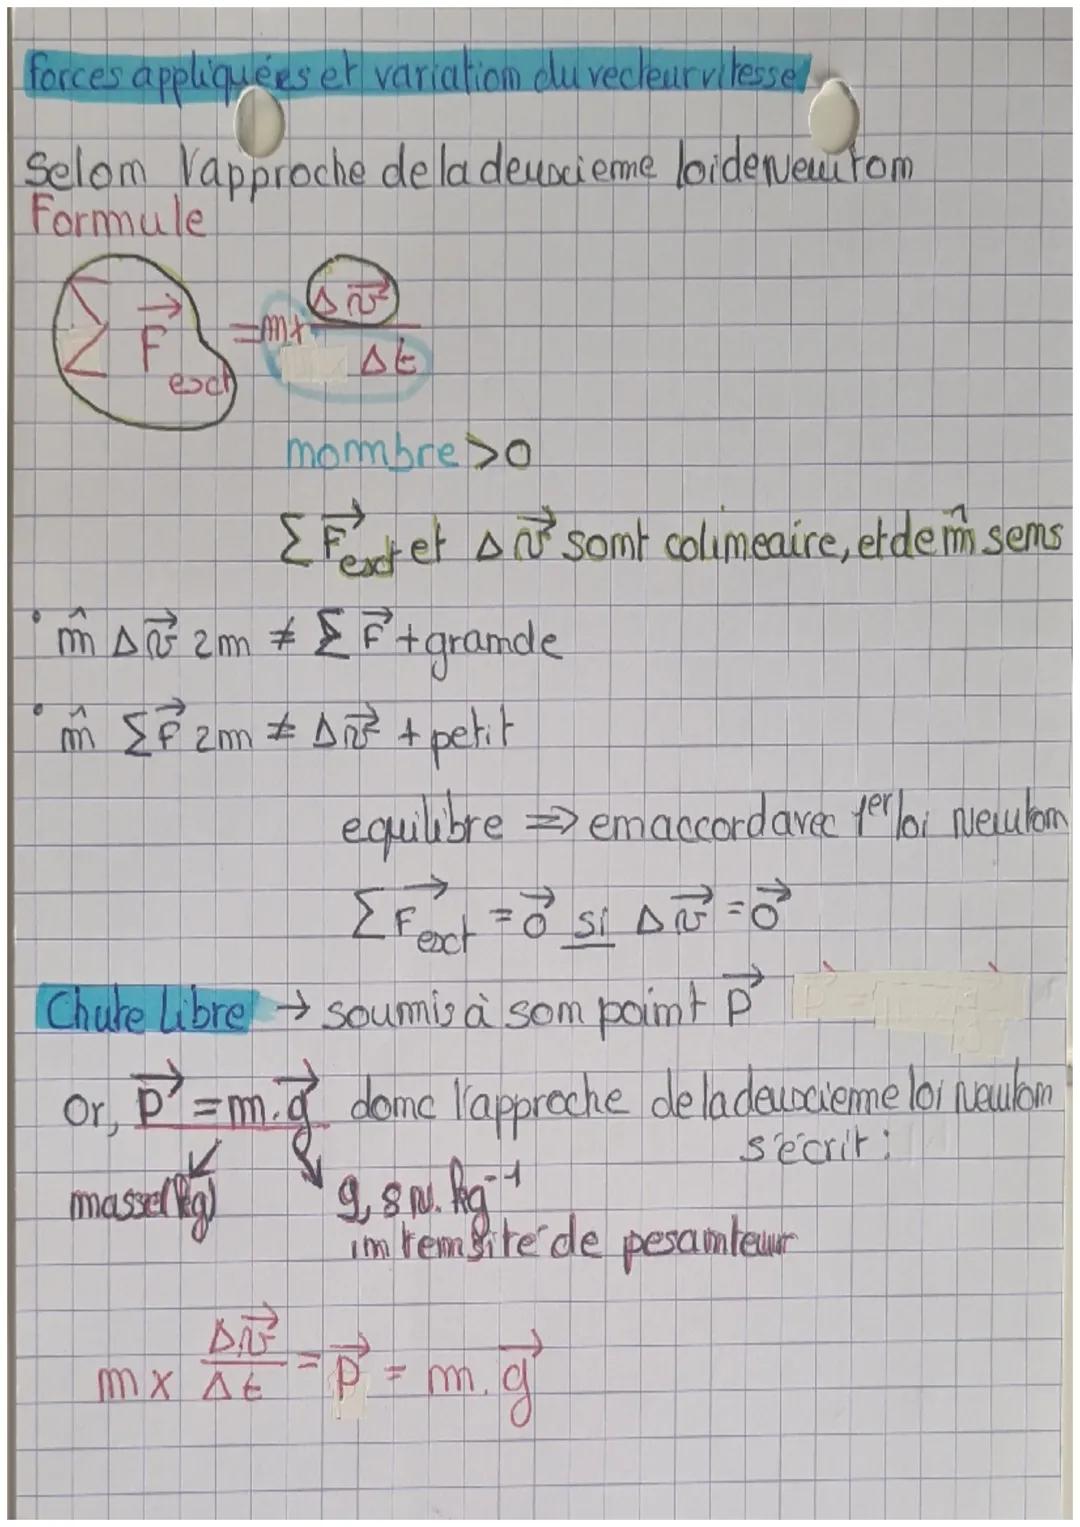 forces appliquées et variation du vecteur vitesse
Selon l'approche de la deuxieme loi de Newton
Formule
Σ F⃗ext = m × Δv⃗ / Δt
nombre > 0
Σ F⃗ext et Δv⃗ sont colineaire, et de m̂ sens
• m̂ Δv⃗ 2m ≠ Σ F⃗ + grande
• m̂ Σ F⃗ 2m ≠ Δv⃗ + petit
equilibre ⇒ en accord avec 1er loi Newton
Σ F⃗ext = 0⃗ si Δv⃗ = 0⃗
Chute Libre → soumis à son point P⃗
or, P⃗ = m.g⃗ donc l'approche de la deuxieme loi Newton
s'écrit :
masse (kg)
9,8 N.kg⁻¹
intensité de pesanteur
m × Δv⃗ / Δt = P⃗ = m.g⃗